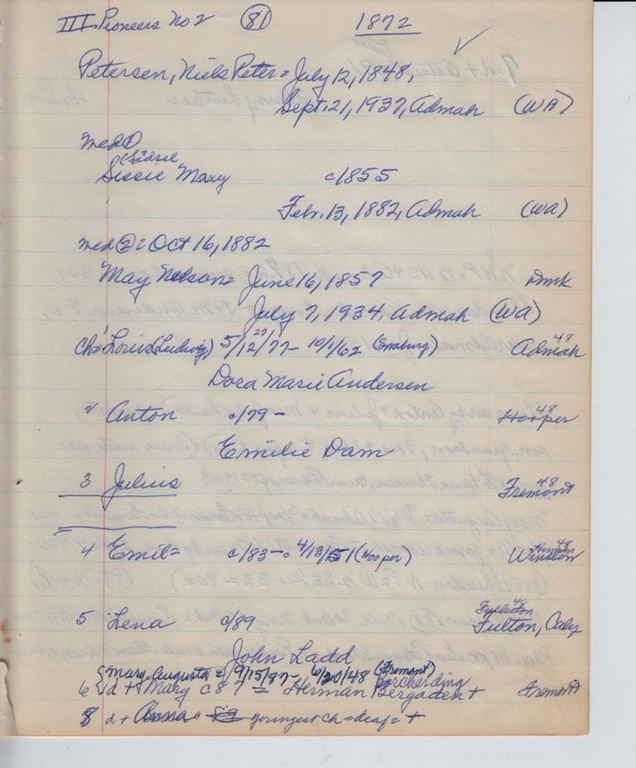 III Pioneers No 2 (81) 1872
Petersen, Niels Peter = July 12, 1848,
Sept. 21, 1937, Admah (WA)
med ①
(Sidsel
Sissie Mary c1855
Febr. 13, 1882, Admah (WA)
med ②: Oct 16, 1882
May Nelson = June 16, 1857 Dmk
July 7, 1934, Admah (WA)
Ch: 1 Louis (Ludwig) 5/12/77 - 10/1/62 Admah 48
Dora Marie Andersen
2 Anton c/79 - Hooper 48
Emilie Dam
3 Julius Fremont 48
4 Emil = c/83 - 4/13/51 (Hooper) Winston 48
5 Lena c/89 Fulton, Caly
John Ladd
Mary Augusta = 9/15/87 - 6/20/48 (Fremont)
Borcherding
6 d + Mary c 87 - Herman Bergadent + Fremont
8 d + Anna c 89 youngest ch = deaf = +